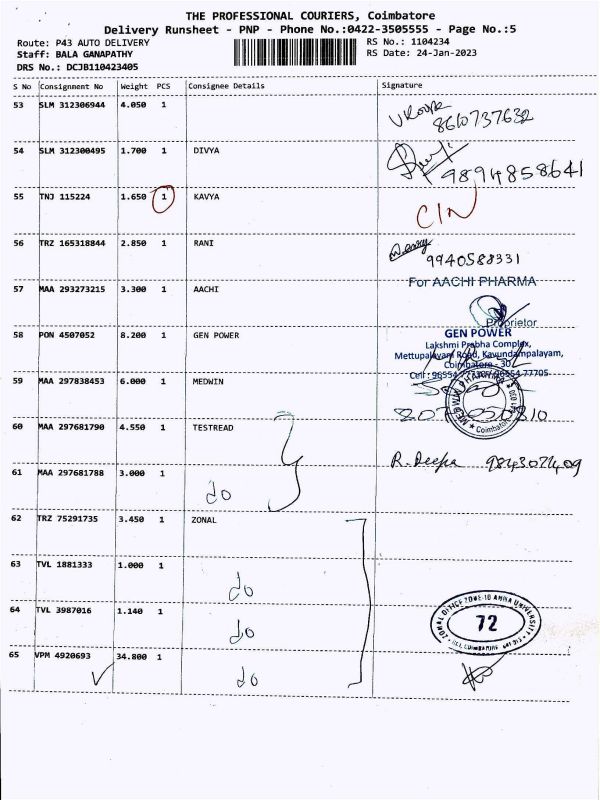 THE PROFESSIONAL COURIERS, Coimbatore
Delivery Runsheet - PNP - Phone No.:0422-3505555 - Page No.:5
Route: P43 AUTO DELIVERY RS No.: 1104234
Staff: BALA GANAPATHY RS Date: 24-Jan-2023
DRS No.: DCJB110423405
S No Consignment No Weight PCS Consignee Details Signature
53 SLM 312306944 4.050 1
8610737632
54 SLM 312300495 1.700 1 DIVYA
9894858641
55 TNJ 115224 1.650 1 KAVYA CIN
56 TRZ 165318844 2.850 1 RANI
9940588331
57 MAA 293273215 3.300 1 AACHI For AACHI PHARMA
Proprietor
58 PON 4507052 8.200 1 GEN POWER GEN POWER
Lakshmi Prabha Complex,
Mettupalayam Road, Kavundampalayam,
Coimbatore - 30
77705
59 MAA 297838453 6.000 1 MEDWIN
Coimbatore
60 MAA 297681790 4.550 1 TESTREAD
R. Deepa
61 MAA 297681788 3.000 1 do
62 TRZ 75291735 3.450 1 ZONAL
63 TVL 1881333 1.000 1 do
64 TVL 3987016 1.140 1 do
ZONAL OFFICE ZONE-10 ANNA UNIVERSITY
72
65 VPM 4920693 34.800 1 do